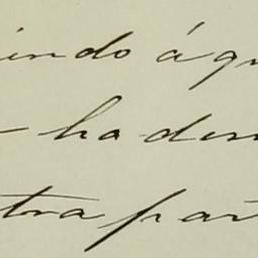 indo á qu
- ha den
tra par